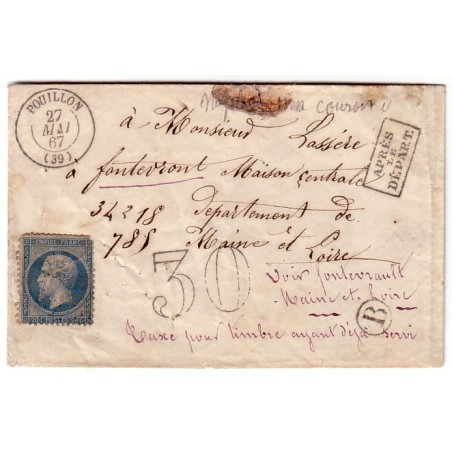 POUILLON
27
MAI
67
(39)
couronne
APRÈS
LE
DÉPART.
à Monsieur Lassère
à fontevront Maison Centrale
34218 Departement de
785 Maine et Loire
EMPIRE FRANC
30
Voir fontevrault
Maine et Loire
B
Taxe pour timbre ayant déjà servi